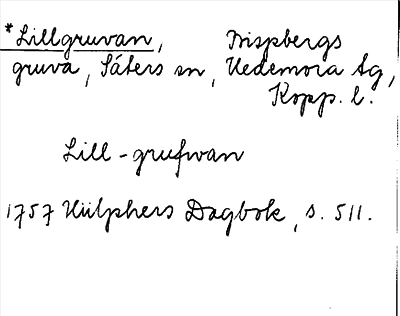 *Lillgruvan, Bispbergs
gruva, Säters sn, Hedemora tg,
Kopp. l.
Lill-grufwan
1757 Hülphers Dagbok, s. 511.